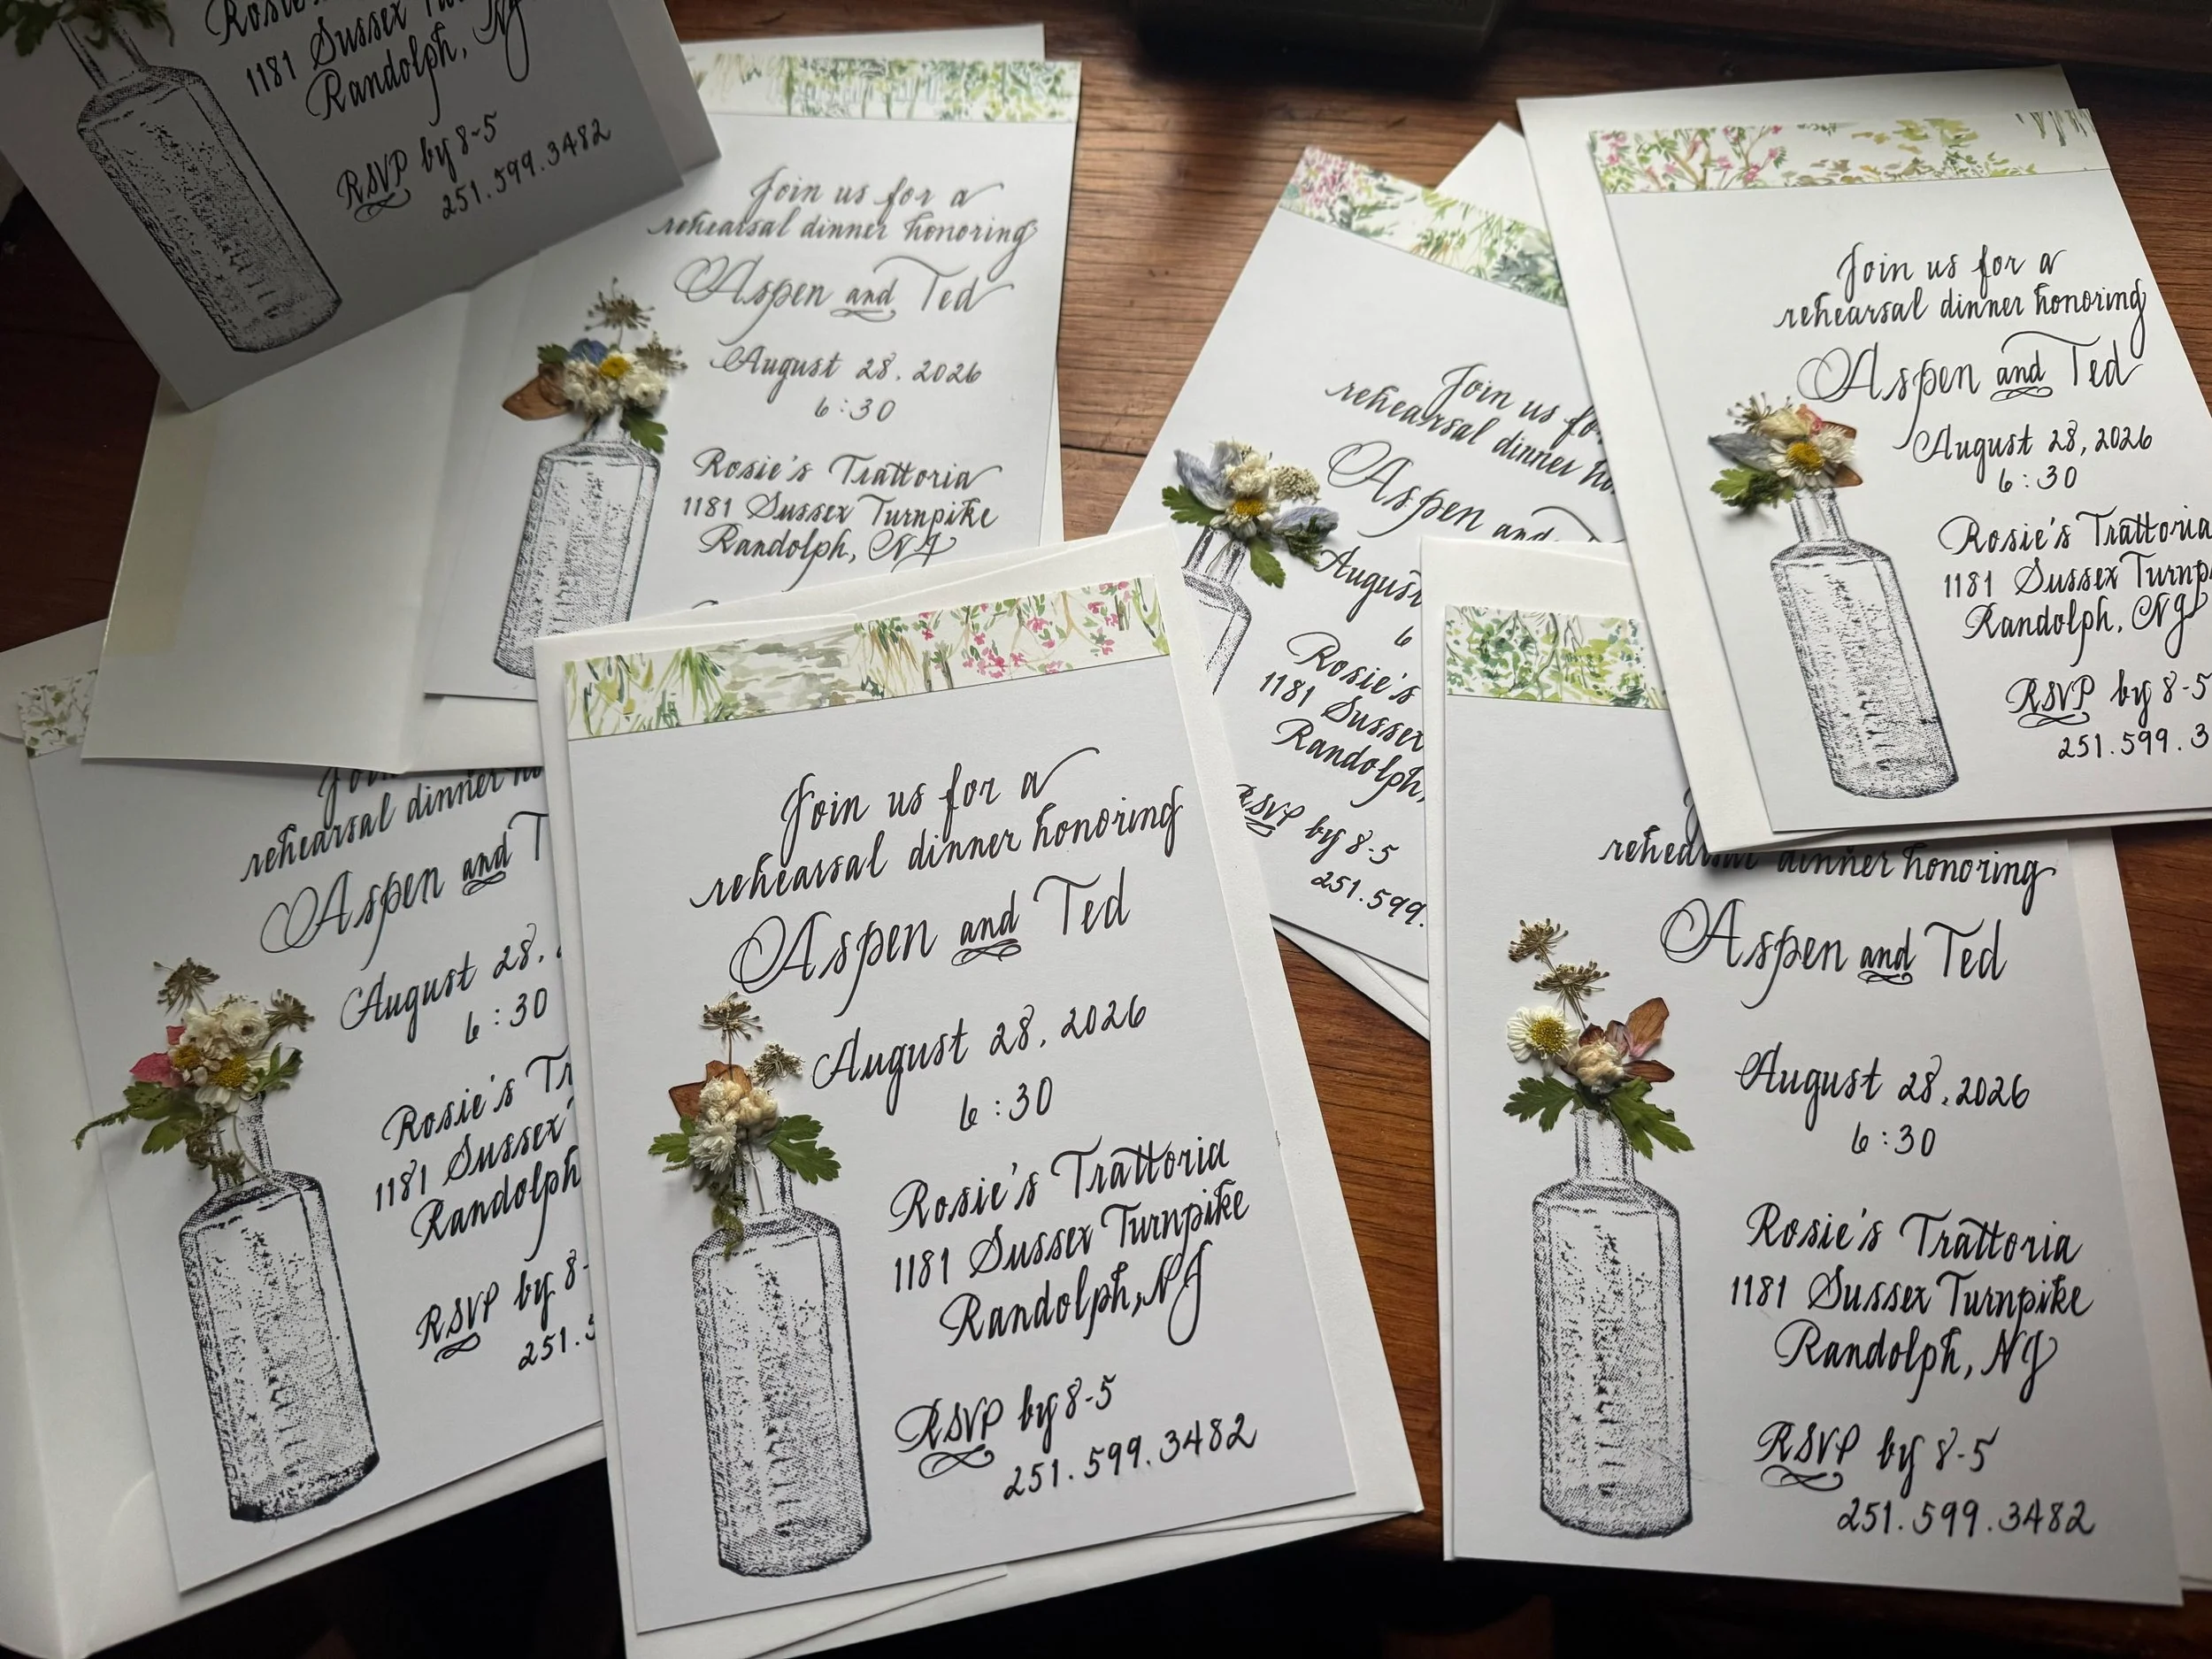 Rosie's
1181 Sussex
Randolph, NJ
RSVP by 8-5
251.599.3482
Join us for a
rehearsal dinner honoring
Aspen and Ted
August 28, 2026
6:30
Rosie's Trattoria
1181 Sussex Turnpike
Randolph, NJ
Join us
rehearsal dinner
Aspen and
August
6
Rosie's
1181 Sussex
Randolph,
RSVP by 8-5
251.599.
Join us for a
rehearsal dinner honoring
Aspen and Ted
August 28, 2026
6:30
Rosie's Trattoria
1181 Sussex
Randolph, NJ
RSVP by 8-5
251.599.3
Join
rehearsal dinner
Aspen and
August 28,
6:30
Rosie's
1181 Sussex
Randolph
RSVP by 8-
251.
Join us for a
rehearsal dinner honoring
Aspen and Ted
August 28, 2026
6:30
Rosie's Trattoria
1181 Sussex Turnpike
Randolph, NJ
RSVP by 8-5
251.599.3482
rehearsal dinner honoring
Aspen and Ted
August 28, 2026
6:30
Rosie's Trattoria
1181 Sussex Turnpike
Randolph, NJ
RSVP by 8-5
251.599.3482